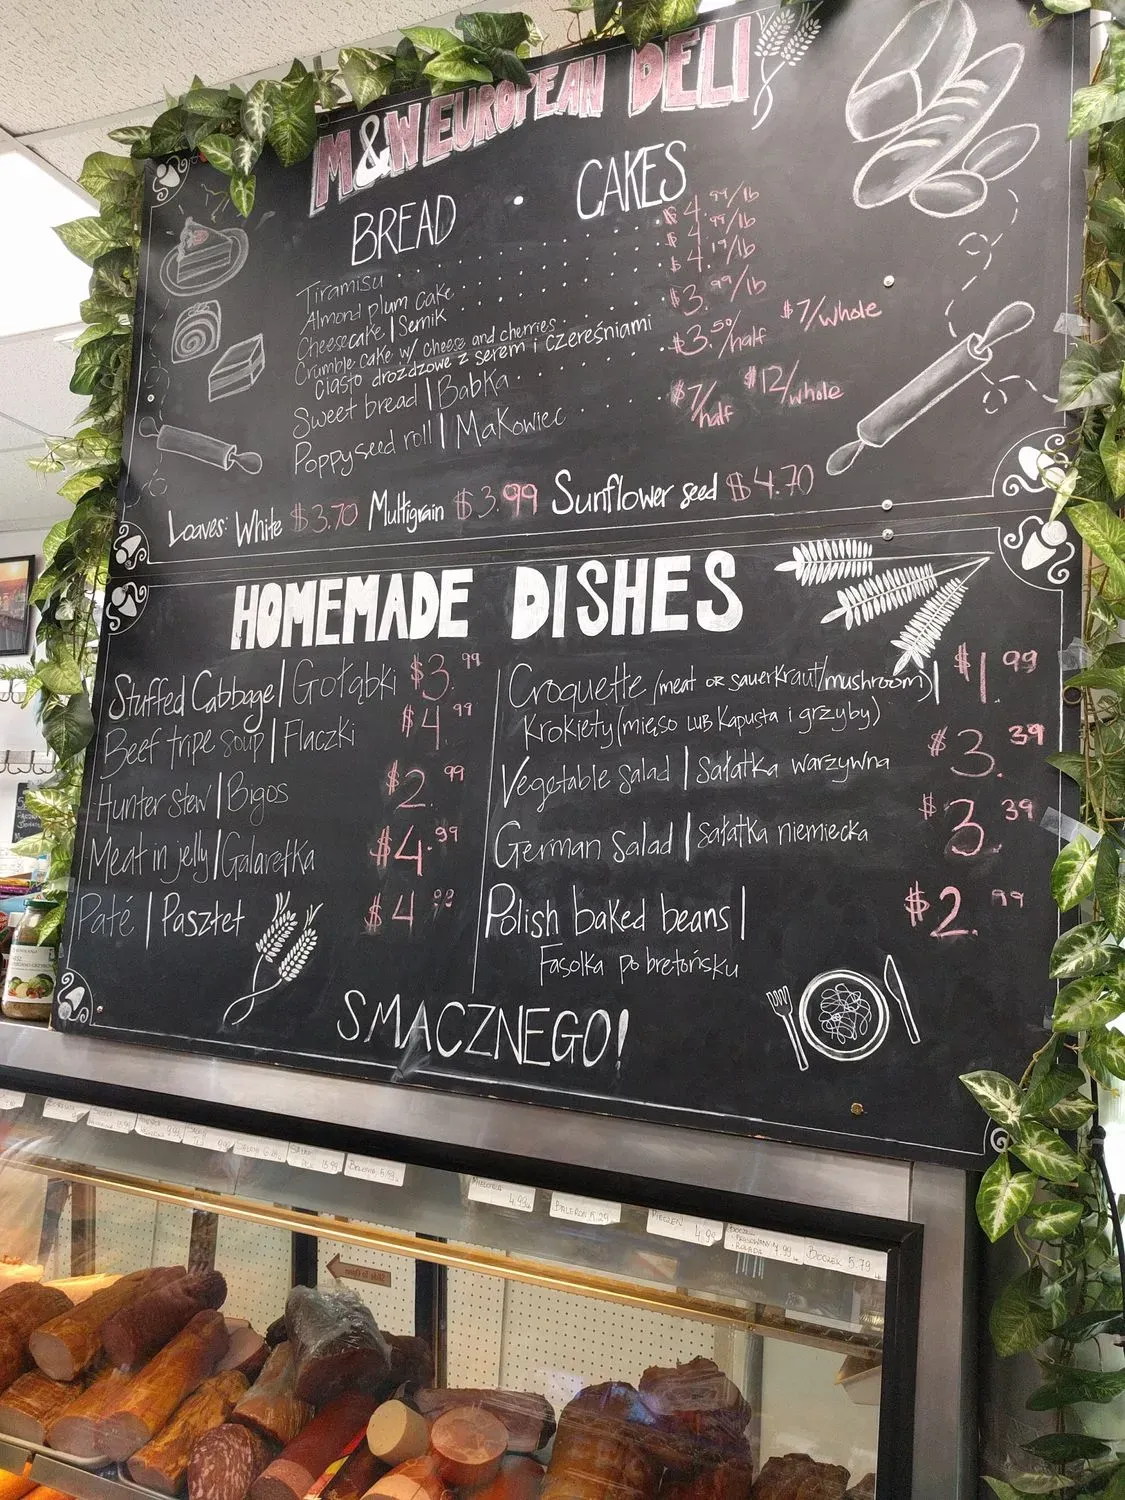 M&W EUROPEAN DELI
BREAD • CAKES
Tiramisu $4.99/lb
Almond plum cake $4.99/lb
Cheesecake | Sernik $4.19/lb
Crumble cake w/ cheese and cherries $3.99/lb
Ciasto drożdżowe z serem i czereśniami
Sweet bread | Babka $3.50/half $7/whole
Poppyseed roll | Makowiec $7/half $12/whole
Loaves: White $3.70 Multigrain $3.99 Sunflower seed $4.70
HOMEMADE DISHES
Stuffed Cabbage | Gołąbki $3.99
Beef tripe soup | Flaczki $4.99
Hunter stew | Bigos $2.99
Meat in jelly | Galaretka $4.99
Paté | Pasztet $4.99
Croquette (meat or sauerkraut/mushroom) | $1.99
Krokiety (mięso lub kapusta i grzyby)
Vegetable salad | Sałatka warzywna $3.39
German salad | Sałatka niemiecka $3.39
Polish baked beans | $2.99
Fasolka po bretońsku
SMACZNEGO!
4.99
BALERON 5.29
PIECZEŃ 4.99
ROLADA 4.99
BOCZEK 5.79